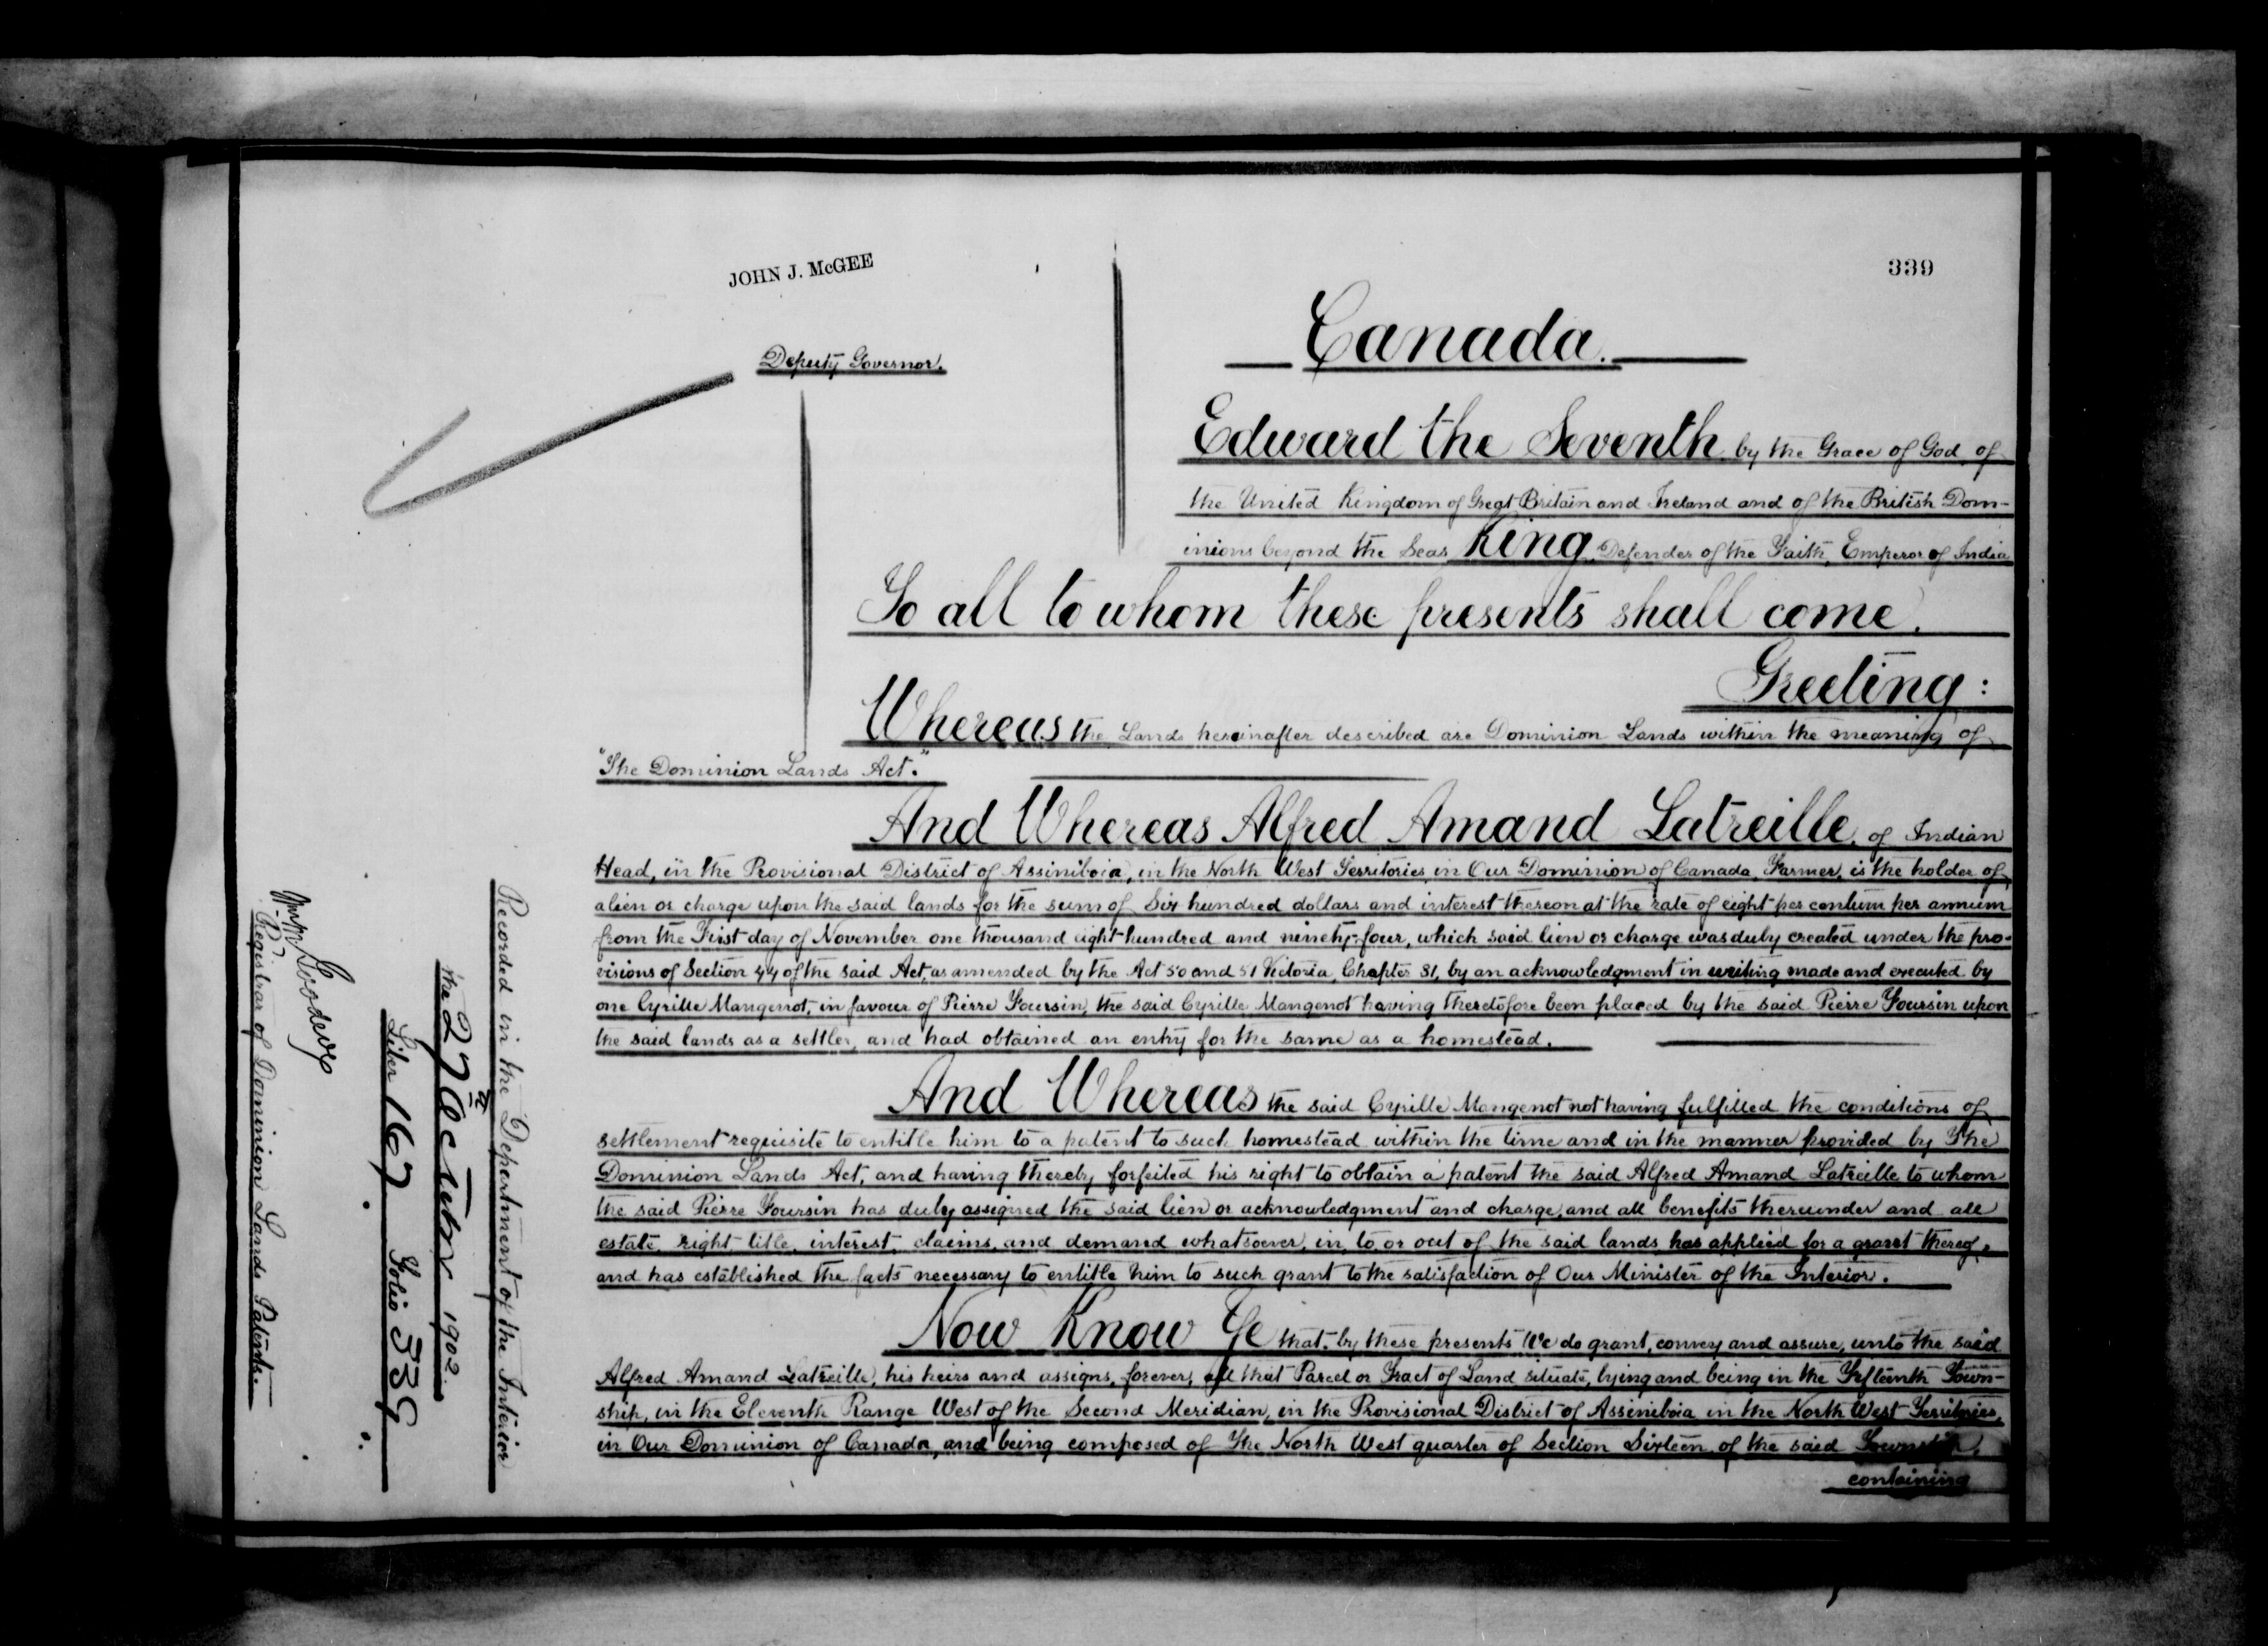 339
JOHN J. McGEE
Deputy Governor.
Canada.
Edward the Seventh by the Grace of God, of
the United Kingdom of Great Britain and Ireland and of the British Dom-
inions beyond the Seas King, Defender of the Faith, Emperor of India
To all to whom these presents shall come.
Greeting:
Whereas the Lands hereinafter described are Dominion Lands within the meaning of
"The Dominion Lands Act."
And Whereas Alfred Amand Latreille, of Indian
Head, in the Provisional District of Assiniboia, in the North West Territories, in Our Dominion of Canada, Farmer, is the holder of
a lien or charge upon the said lands for the sum of Six hundred dollars and interest thereon at the rate of eight per centum per annum
from the First day of November one thousand eight hundred and ninety-four, which said lien or charge was duly created under the pro-
visions of Section 44 of the said Act, as amended by the Act 50 and 51 Victoria, Chapter 31, by an acknowledgment in writing made and executed by
one Cyrille Mangenot, in favour of Pierre Foursin, the said Cyrille Mangenot having theretofore been placed by the said Pierre Foursin upon
the said lands as a settler, and had obtained an entry for the same as a homestead.
And Whereas the said Cyrille Mangenot not having fulfilled the conditions of
settlement requisite to entitle him to a patent to such homestead within the time and in the manner provided by The
Dominion Lands Act, and having thereby forfeited his right to obtain a patent the said Alfred Amand Latreille to whom
the said Pierre Foursin has duly assigned the said lien or acknowledgment and charge, and all benefits thereunder and all
estate, right, title, interest, claims, and demand whatsoever, in, to, or out of the said lands, has applied for a grant thereof,
and has established the facts necessary to entitle him to such grant to the satisfaction of Our Minister of the Interior.
Now Know Ye that by these presents We do grant, convey and assure, unto the said
Alfred Amand Latreille, his heirs and assigns, forever, all that Parcel or Tract of Land situate, lying and being in the Fifteenth Town-
ship, in the Eleventh Range West of the Second Meridian, in the Provisional District of Assiniboia in the North West Territories,
in Our Dominion of Canada, and being composed of The North West quarter of Section Sixteen, of the said Township,
containing
Recorded in the Department of the Interior
the 27th October 1902.
Liber 167 Folio 339
Registrar of Dominion Lands Patents.